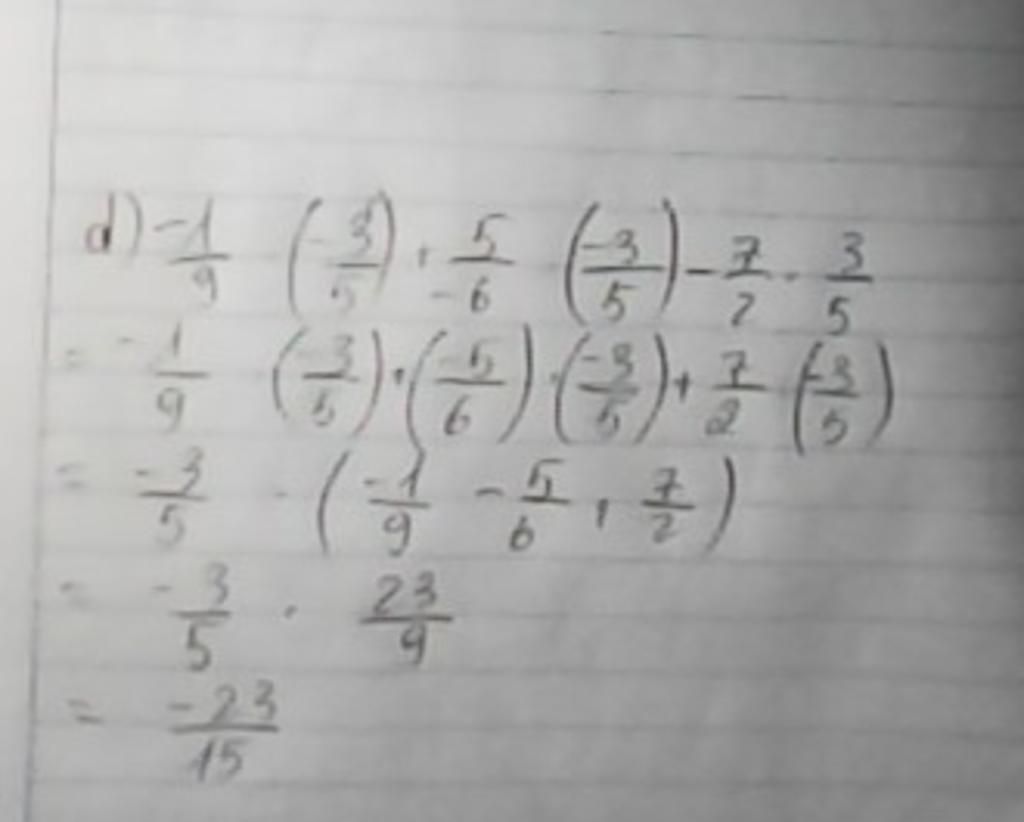 d) -1/9 (-3/5) + 5/-6 (-3/5) - 7/2 · 3/5
= -1/9 (-3/5) + (-5/6) · (-3/5) + 7/2 (-3/5)
= -3/5 · (-1/9 - 5/6 + 7/2)
= -3/5 · 23/9
= -23/15